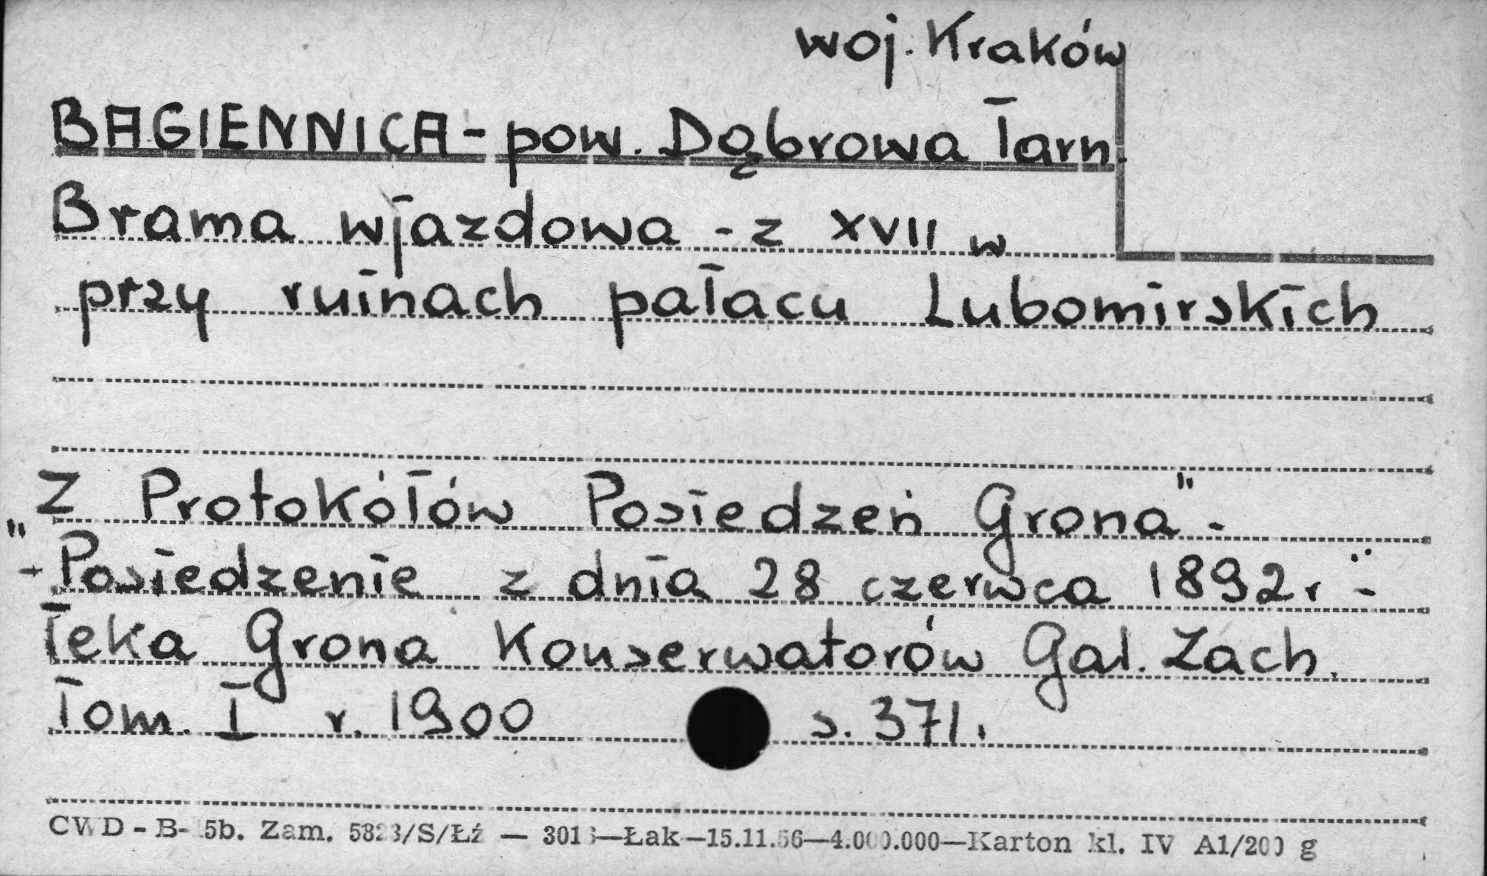 woj. Kraków
BAGIENNICA - pow. Dąbrowa Tarn.
Brama wjazdowa - z XVII w
przy ruinach pałacu Lubomirskich
Z Protokółów Posiedzeń Grona" -
"- Posiedzenie z dnia 28 czerwca 1892 r" -
Teka Grona Konserwatorów Gal. Zach.
Tom. I r. 1900 s. 371.
CWD - B- 5b. Zam. /S/Łź — —Łak—15.11.56—4.000.000—Karton kl. IV A1/200 g